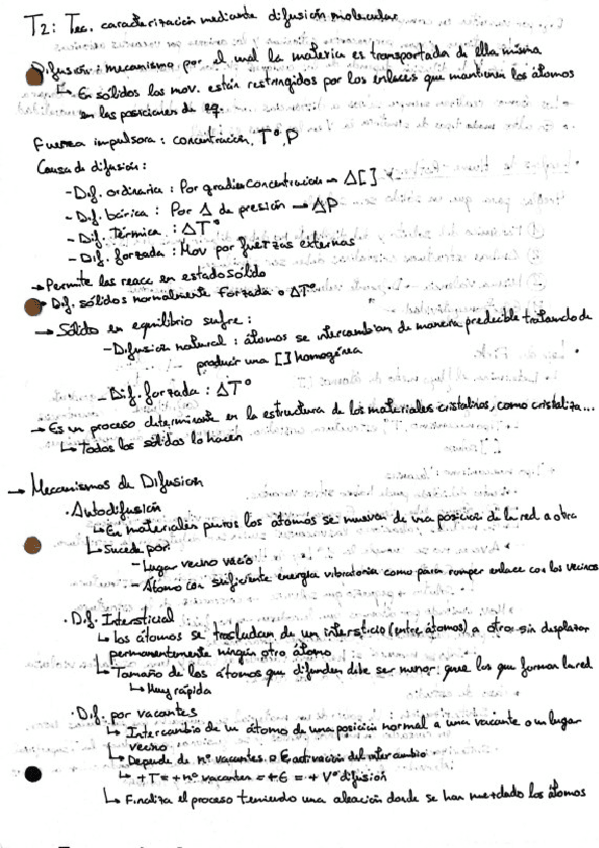 T2: Tec. caracterización mediante difusión molecular
Difusión: mecanismo por el cual la materia es transportada de ella misma
↳ En sólidos los mov. están restringidos por los enlaces que mantienen los átomos
en las posiciones de eq.
Fuerza impulsora: concentración, T°, P
Causa de difusión:
- Dif. ordinaria: Por gradien concentracion → Δ[ ]
- Dif. bárica: Por Δ de presión → ΔP
- Dif. Térmica: ΔT°
- Dif. forzada: Mov por fuerzas externas
→ Permite las reacc en estado sólido
→ Dif. sólidos normalmente forzada o ΔT°
→ Sólido en equilibrio sufre:
- Difusion natural: átomos se intercambian de manera predecible tratando de
producir una [ ] homogénea
- Dif. forzada: ΔT°
→ Es un proceso determinante en la estructura de los materiales cristalinos, como cristaliza...
↳ Todos los sólidos lo hacen
→ Mecanismos de Difusion
· Autodifusión
↳ En materiales puros los átomos se mueven de una posición de la red a otra
↳ Sucede por:
- Lugar vecino vacío
- Átomo con suficiente energía vibratoria como para romper enlace con los vecinos
· Dif. Intersticial
↳ los átomos se trasladan de un intersticio (entre átomos) a otro sin desplazar
permanentemente ningún otro átomo
↳ Tamaño de los átomos que difunden debe ser menor que los que forman la red
↳ Muy rápida
· Dif. por vacantes
↳ Intercambio de un átomo de una posición normal a una vacante o un lugar
vecino
↳ Depende de nº vacantes o E activación del intercambio
↳ +T = + nº vacantes = +E = + Vº difusión
↳ Finaliza el proceso teniendo una aleación donde se han mezclado los átomos